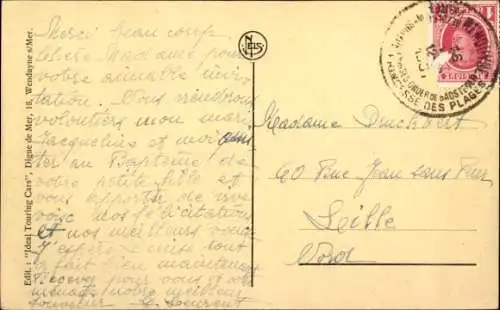 Edit.: "Ideal Touring Cars", Digue de Mer, 18, Wenduyne s/Mer.
Merci beaucoup
chère Madame pour
votre aimable invi-
tation. Nous viendrons
volontiers mon mari
Jacqueline et moi
ter au Baptême de
votre petite fille et
vous apporter de vive
voix nos félicitations
et nos meilleurs vœux
J'espère tout
à fait bien maintenant
Recevez pour vous et votre
notre meilleur
souvenir
NELS
DES PLAGES
Madame
60 Rue Jean sans Peur
Lille
Nord